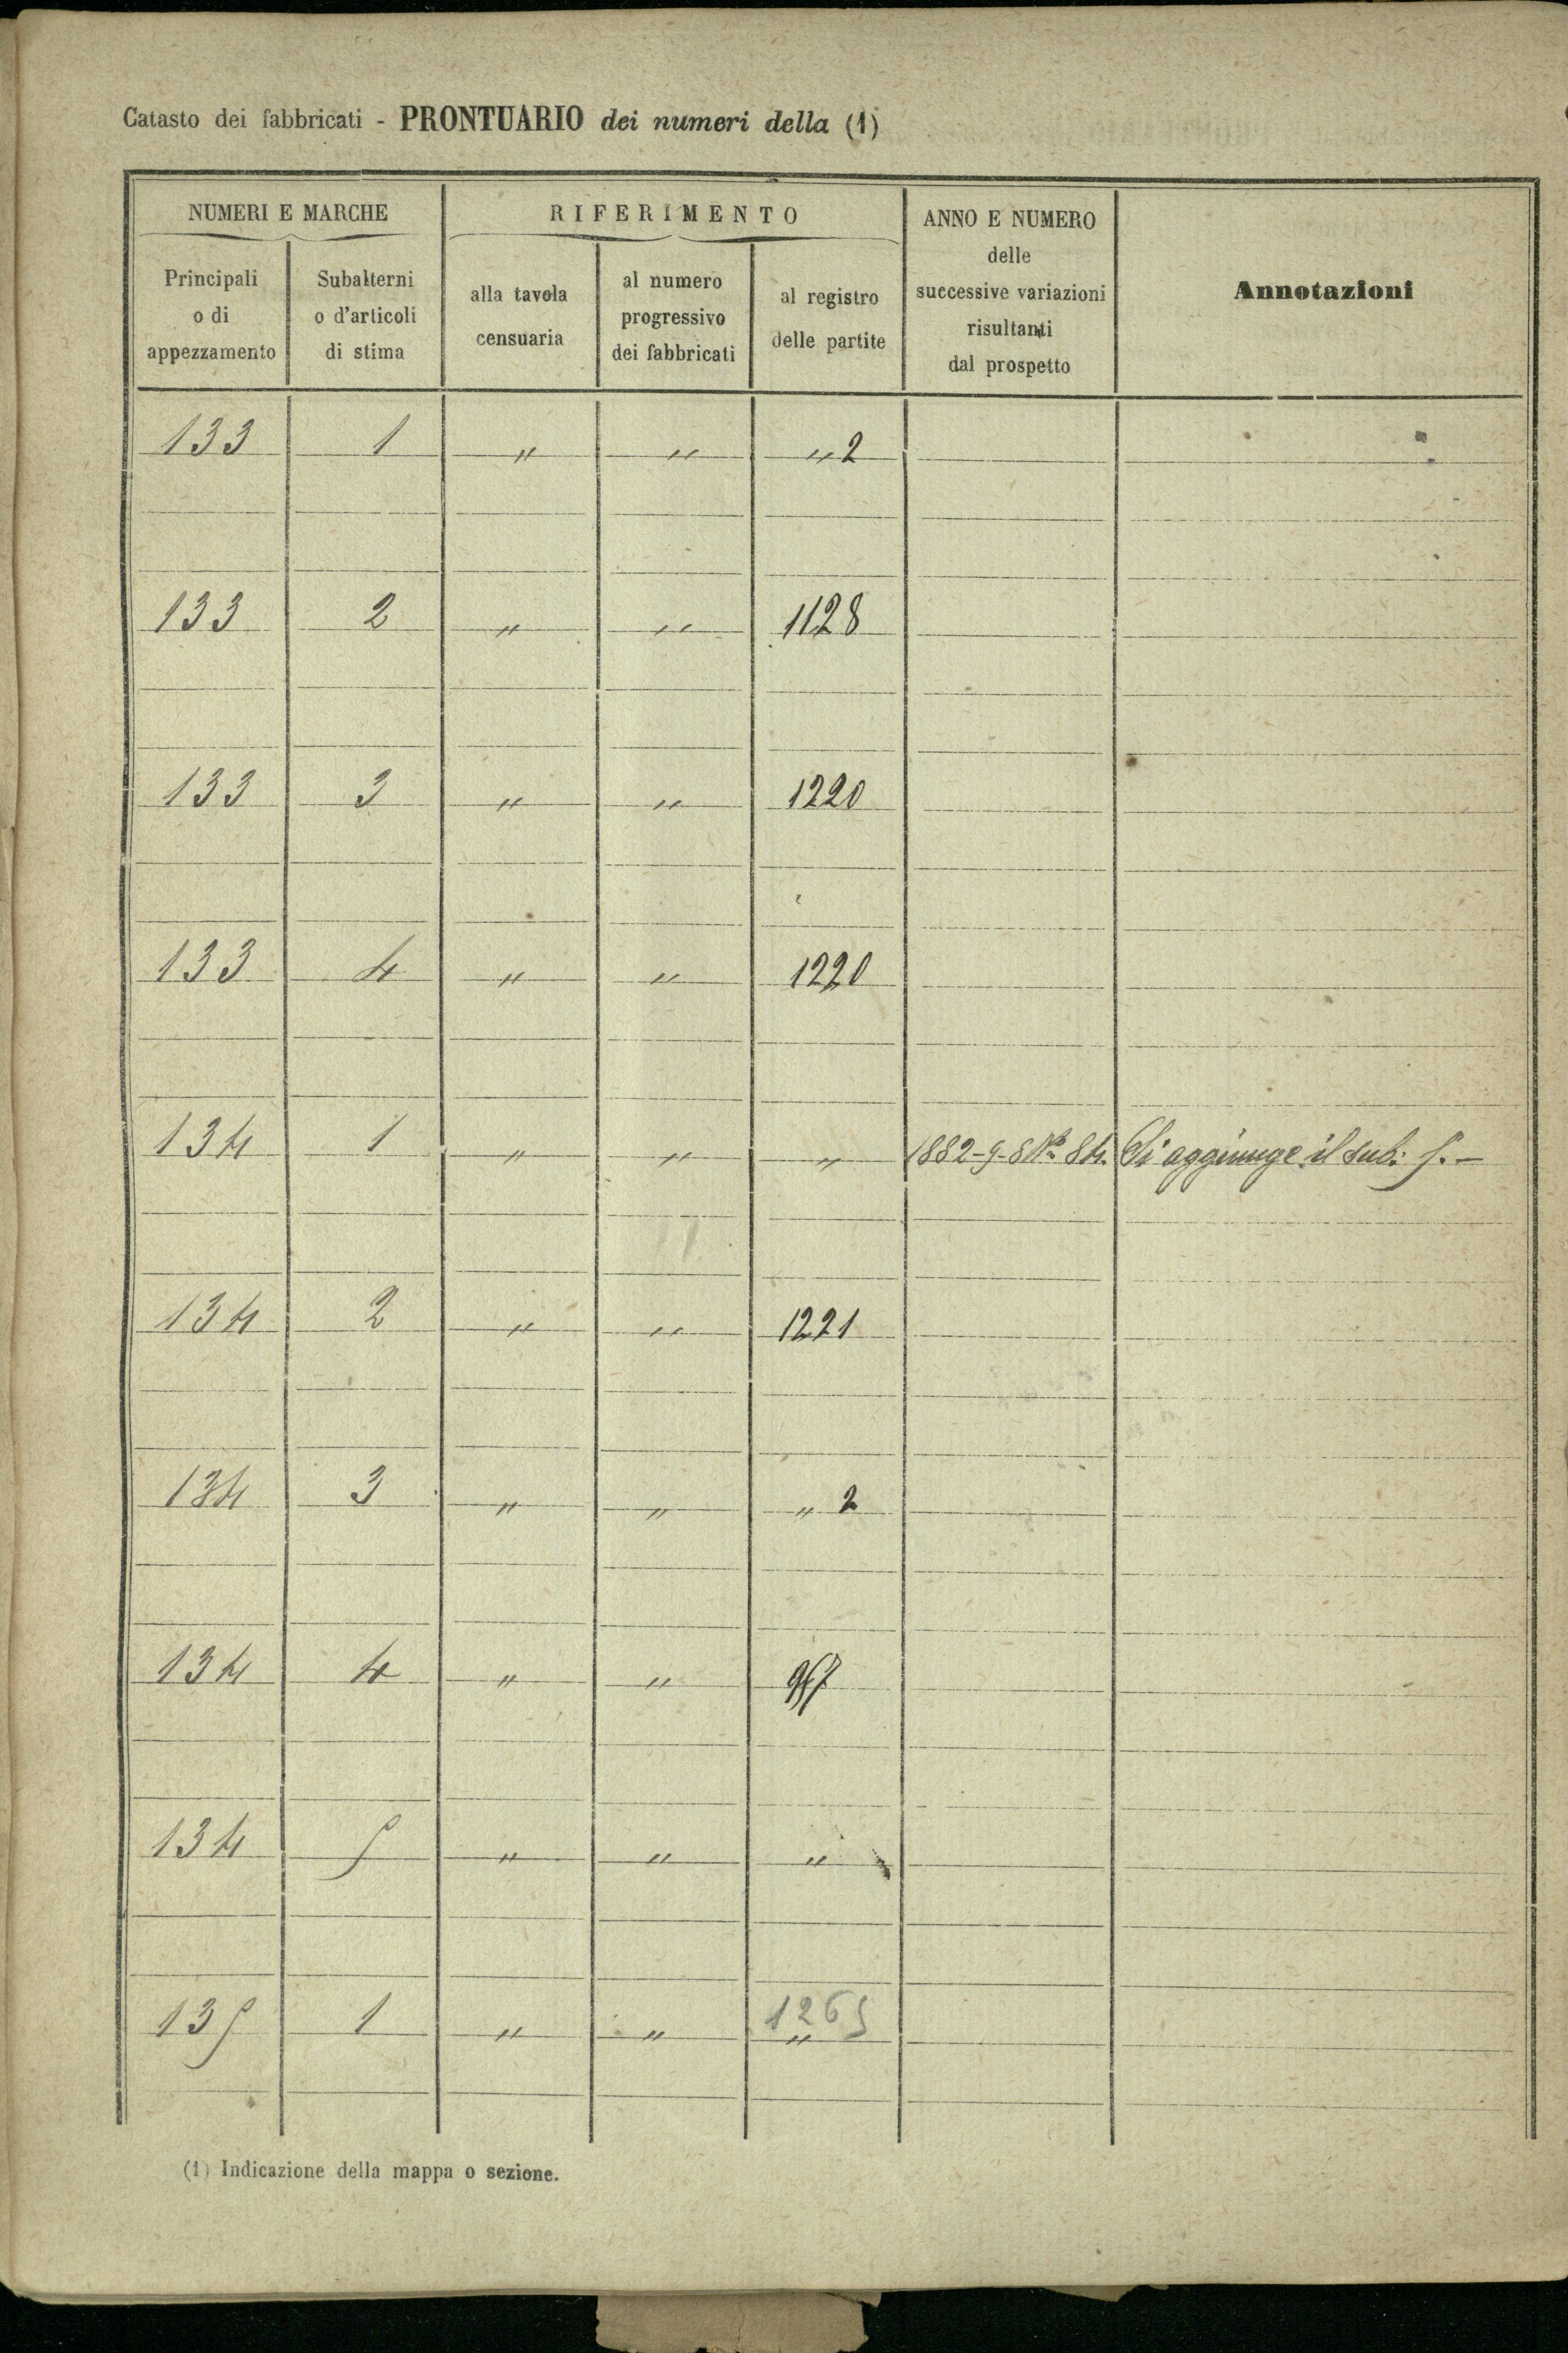 Catasto dei fabbricati - PRONTUARIO dei numeri della (1)
NUMERI E MARCHE
RIFERIMENTO
ANNO E NUMERO
delle
successive variazioni
risultanti
dal prospetto
Annotazioni
Principali
o di
appezzamento
Subalterni
o d'articoli
di stima
alla tavola
censuaria
al numero
progressivo
dei fabbricati
al registro
delle partite
133 1 " " " 2
133 2 " " 1128
133 3 " " 1220
133 4 " " 1220
134 1 " " " 1882-9-8 No. 84. Si aggiunge il sub: 5. -
134 2 " " 1221
134 3 " " " 2
134 4 " "
134 5 " " "
135 1 " " 1265 "
(1) Indicazione della mappa o sezione.